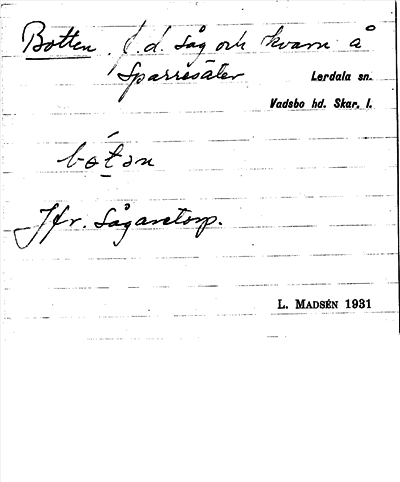 Botten, f.d. såg och kvarn å
Sparresäter
Lerdala sn.
Vadsbo hd. Skar. l.
bo̱tən
Jfr. Sågaretorp.
L. MADSÉN 1931